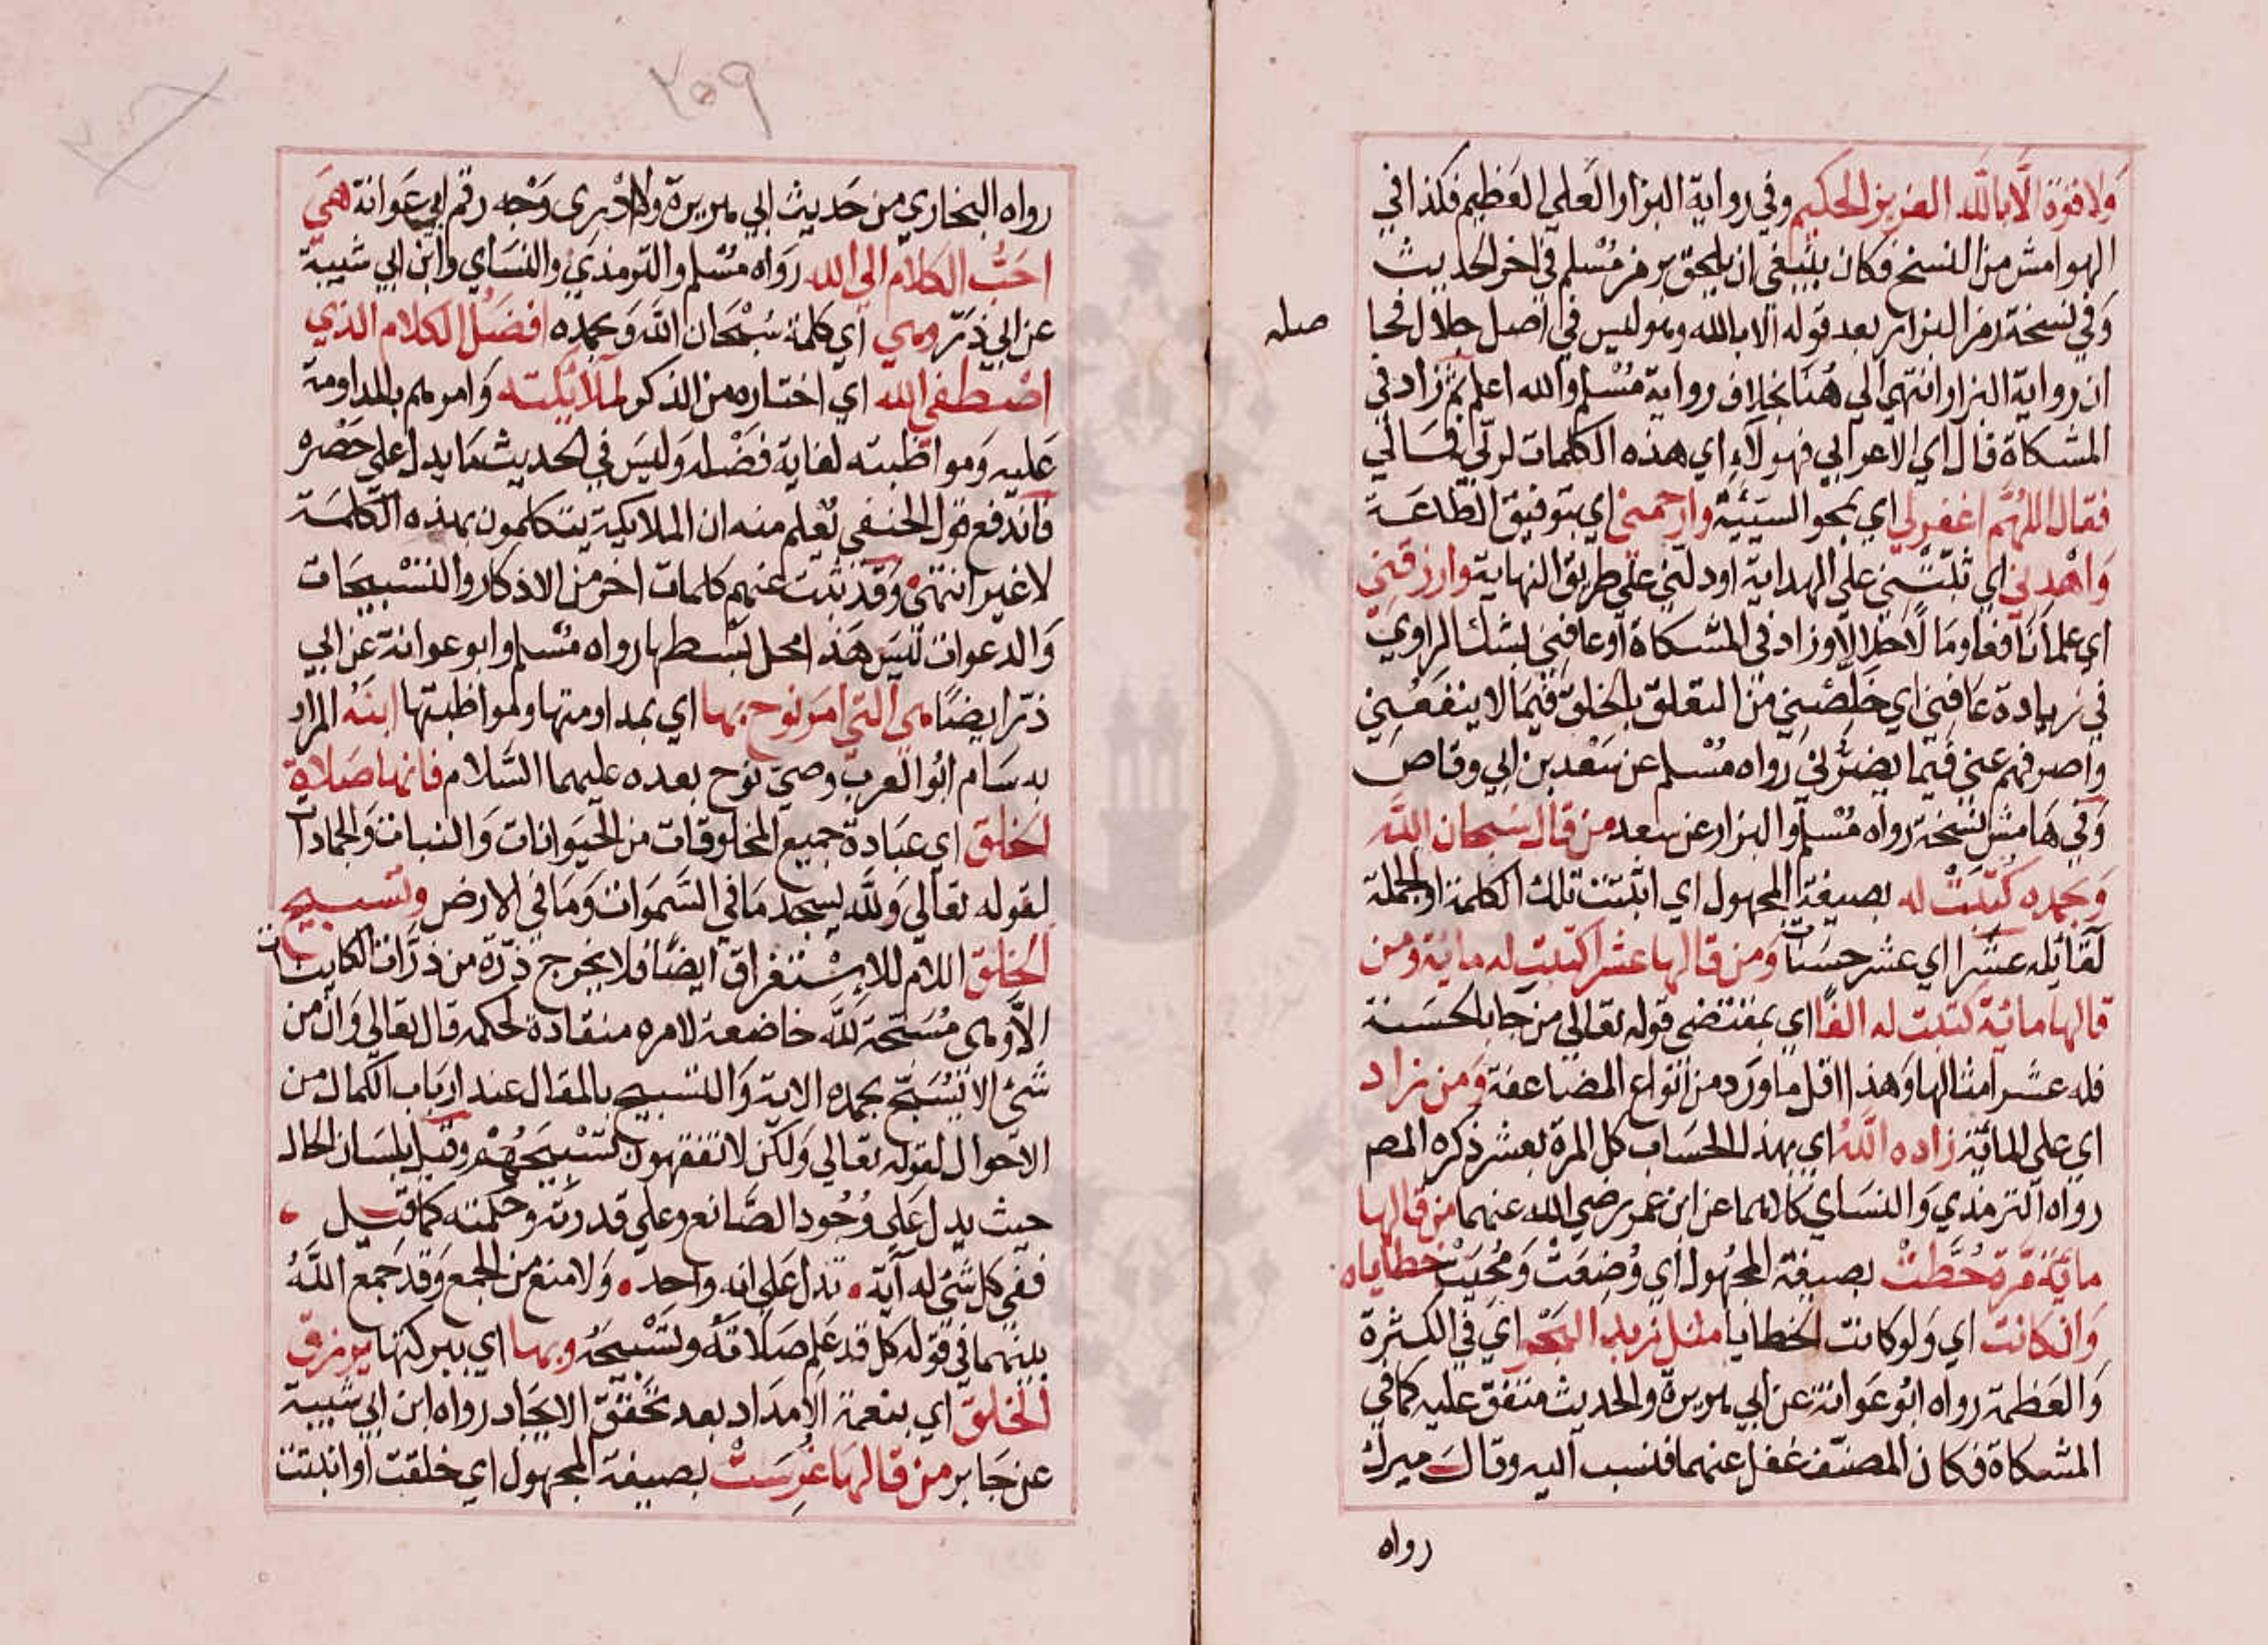 ولا قوة الا بالله العزيز الحكيم وفي رواية البزار العلي العظيم فكذا في
الهوامش من النسخ فكان ينبغي ان يلحق برمز مسلم في اخر الحديث
وفي نسخة رمز البزار بعد قوله الا بالله وهو ليس في اصل جلال فحا
صله
ان رواية البزار انتهي الي هنا بخلاف رواية مسلم والله اعلم ثم زاد في
المشكاة قال اي الاعرابي فهولاء اي هذه الكلمات لربي فما لي
فقال اللهم اغفر لي اي بمحو السيئة وارحمني اي بتوفيق الطاعة
واهدني اي ثبتني علي الهداية او دلني علي طريق النهاية وارزقني
اي علما نافعا ومالا حلالا وزاد في المشكاة او عافني بشك الراوي
في زيادة عافني اي خلصني من التعلق بالخلق فيما لا ينفعني
واصرفهم عني فيما يضرني رواه مسلم عن سعد بن ابي وقاص
وفي هامش نسخة رواه مسلم والبزار عن سعد من قال سبحان الله
وبحمده كتبت له بصيغة المجهول اي اثبتت تلك الكلمة او الجملة
لقائله عشرا اي عشر حسنات ومن قالها عشرا كتبت له مائة ومن
قالها مائة كتبت له الفا اي بمقتضي قوله تعالي من جا بالحسنة
فله عشر امثالها وهذا اقل ما ورد من انواع المضاعفة ومن زاد
اي علي المائة زاده الله اي بهذا الحساب كل المرة بعشر ذكره المص
رواه الترمذي والنساي كلاهما عن ابن عمر رضي الله عنهما من قالها
مائة مرة حطت بصيغة المجهول اي وضعت ومحيت خطاياه
وان كانت اي ولو كانت الخطايا مثل زبد البحر اي في الكثرة
والعظمة رواه ابو عوانة عن ابي هريرة والحديث متفق عليه كما في
المشكاة فكان المصنف غفل عنهما فنسب اليه وقال ميرك
رواه
٢٠٩
رواه البخاري من حديث ابي هريرة ولا ادري وجه رقم ابي عوانة هي
احب الكلام الي الله رواه مسلم والترمذي والنساي وابن ابي شيبة
عن ابي ذر وهي اي كلمة سبحان الله وبحمده افضل الكلام الذي
اصطفي الله اي اختاره من الذكر لملائكته وامرهم بالمداومة
عليه ومواظبته لغاية فضله وليس في الحديث ما يدل علي حصره
فاندفع قول الحنفي نعلم منه ان الملايكة يتكلمون بهذه الكلمة
لا غير انتهي وقد ثبت عنهم كلمات اخر من الاذكار والتسبيحات
والدعوات ليس هذا محل بسطها رواه مسلم وابو عوانة عن ابي
ذر ايضا هي التي امر نوح بها اي بمداومتها ولمواظبتها ابنه المراد
به سام ابو العرب وصي نوح بعده عليهما السلام فانها صلاة
الخلق اي عبادة جميع المخلوقات من الحيوانات والنبات والجمادات
لقوله تعالي ولله يسجد ما في السموات وما في الارض وتسبيح
الخلق اللام للاستغراق ايضا فلا يخرج ذرة من ذرات الكاينات
الا وهي مسبحة لله خاضعة لامره منقادة لحكمه قال تعالي وان من
شئ الا يسبح بحمده الاية والتسبيح بالمقال عند ارباب الكمال من
الاحوال لقوله تعالي ولكن لا تفقهون تسبيحهم وقيل بلسان الحال
حيث يدل علي وجود الصانع وعلي قدرته وحكمته كما قيل
ففي كل شئ له آية تدل علي انه واحد ولا منع من الجمع وقد جمع الله
بينهما في قوله كل قد علم صلاته وتسبيحه وبها اي ببركتها يرزق
الخلق اي بنعمة الامداد بعد تحقق الايجاد رواه ابن ابي شيبة
عن جابر من قالها غرست بصيغة المجهول اي خلقت او انبتت